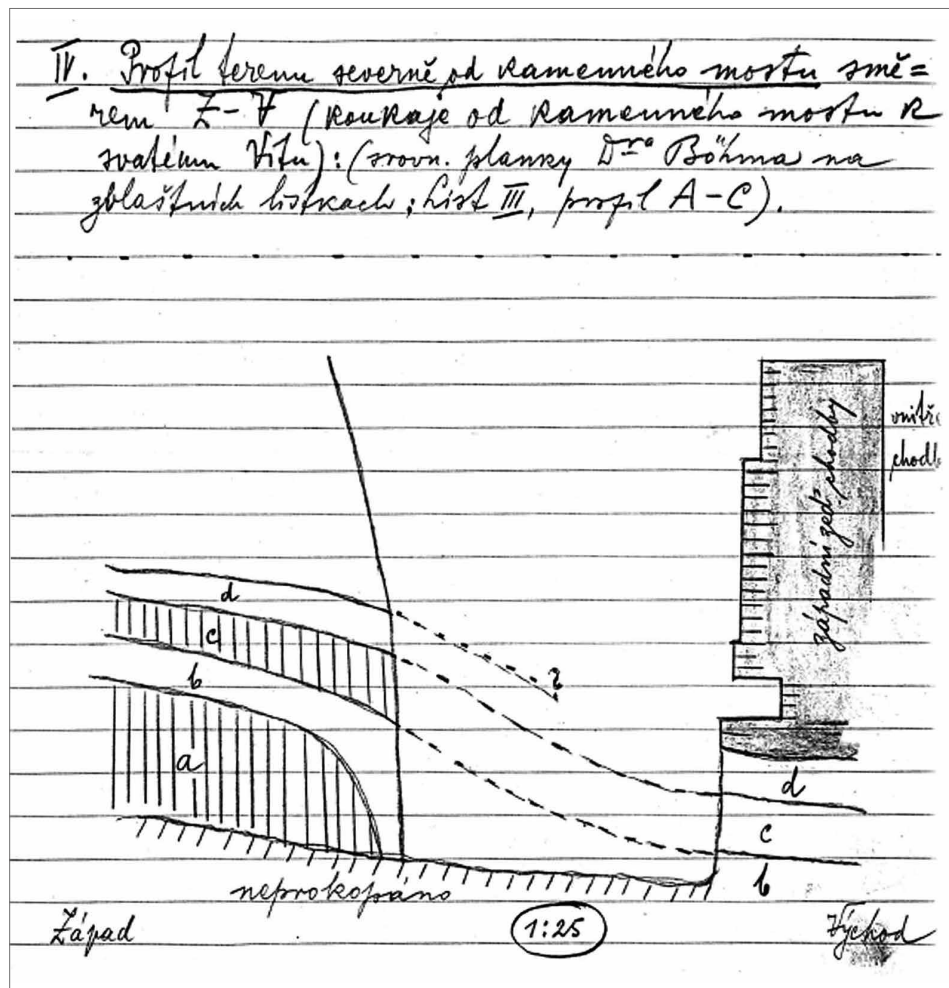 IV. Profil terenu severně od kamenného mostu smě=
rem Z-V (koukaje od kamenného mostu k
svatému Vítu): (srovn. plánky Dra Böhma na
zvláštních lístkách; List III, profil A-C).
vnitř
chodb
západní zeď chodby
d
c
b
a
?
d
c
b
neprokopáno
Západ
1:25
Východ